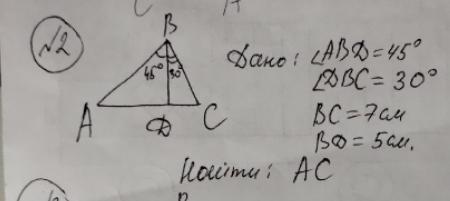 №2
B
45° 30°
A D C
Дано: ∠ABD = 45°
∠DBC = 30°
BC = 7 см
BD = 5 см.
Найти: AC